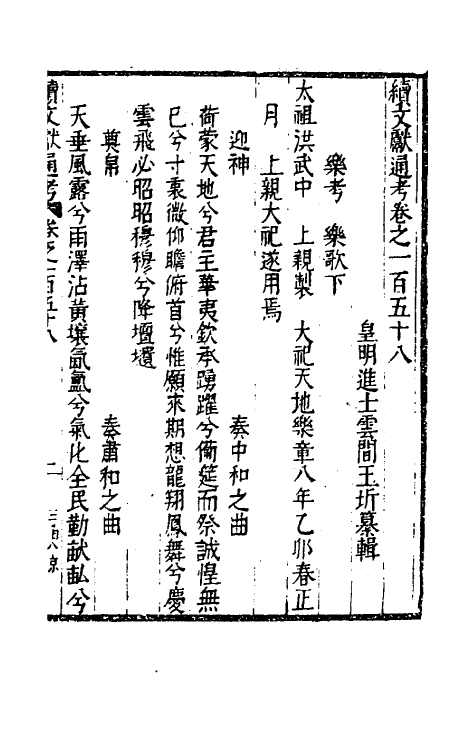 續文獻通考卷之一百五十八
皇明進士雲間王圻纂輯
樂考　樂歌下
太祖洪武中　上親製　大祀天地樂章八年乙夘春正
月　上親大祀遂用焉
迎神　奏中和之曲
荷蒙天地兮君主華夷欽承踴躍兮備筵而祭誠惶無
已兮寸衷微仰瞻俯首兮惟願來期想龍翔鳳舞兮慶
雲飛必昭昭穆穆兮降壇壝
奠帛　奏肅和之曲
天垂風露兮雨澤沾黃壤氤氳兮氣化全民勤畝畝兮
續文獻通考　卷之一百五十八